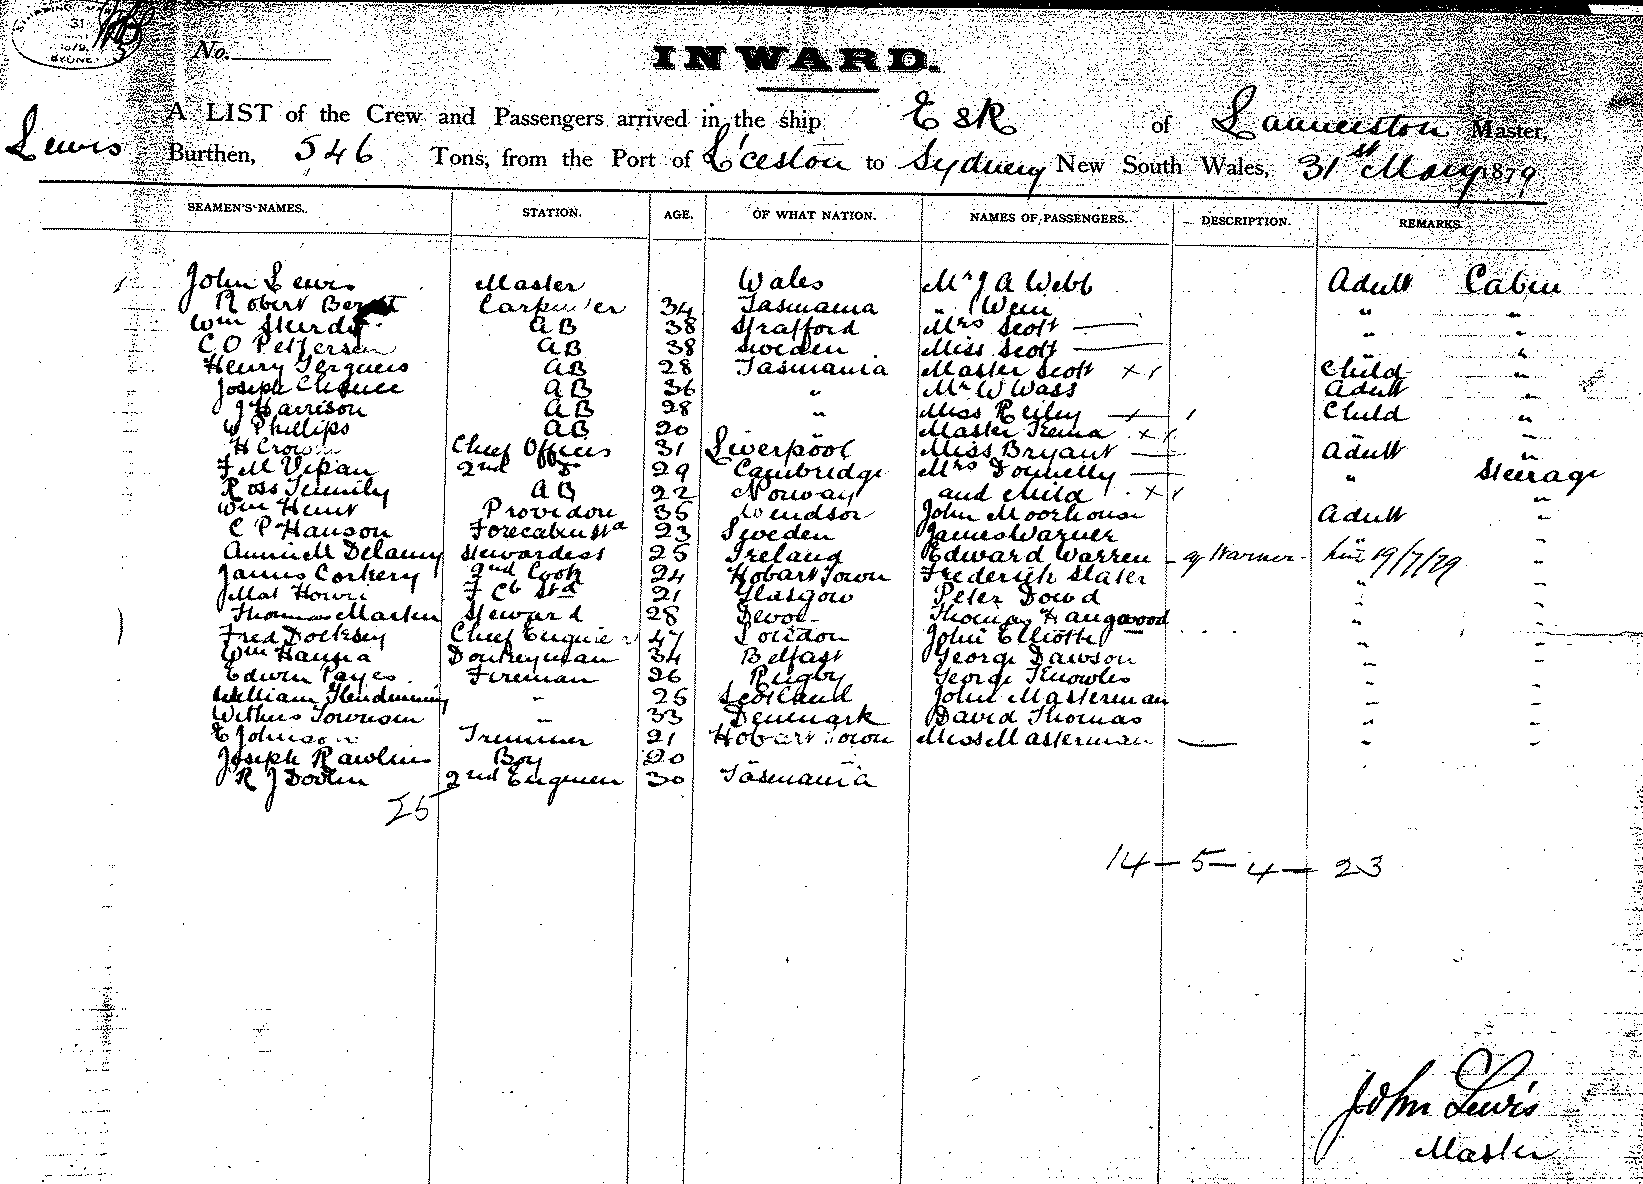 31
SYDNEY
No.
INWARD.
A LIST of the Crew and Passengers arrived in the ship ESK of Launceston Master,
Lewis Burthen, 546 Tons, from the Port of L'ceston to Sydney New South Wales, 31st May 1879
SEAMEN'S NAMES. STATION. AGE. OF WHAT NATION. NAMES OF PASSENGERS. DESCRIPTION. REMARKS.
John Lewis Master Wales Mr J A Webb Adult Cabin
Robert Carpenter 34 Tasmania " Wein " "
Wm AB 38 Strafford Mrs Scott " "
C O Petersen AB 38 Sweden Miss Scott " "
Henry AB 28 Tasmania Master Scott x Child "
Joseph AB 36 " Mr W Wass Adult "
J Harrison AB 28 " Miss Reiley x Child "
W Phillips AB 20 " Master x " "
H Crown Chief Officer 31 Liverpool Miss Bryant Adult "
2nd Do 29 Cambridge Mrs Donnelly " Steerage
Ross AB 22 Norway and child x "
Wm Hunt Providon 35 Windsor John Moorhouse Adult "
C P Hanson Forecabin Std 23 Sweden James Warner "
Delanny Stewardess 25 Ireland Edward Warren - Warner 19/7/79
James Corkery 2nd Cook 24 Hobart Town Frederick Slater " "
F Cb Std 21 Glasgow Peter Dowd " "
Thomas Martin Steward 28 Devon Thomas Haugwood " "
Fred Docksey Chief Engineer 47 London John Elliott " "
Wm Hanna Donkeyman 34 Belfast George Dawson " "
Edwin Payes Fireman 26 Rugby George Knowles " "
William Glendinning " 25 Scotland John Masterman " "
" 33 Denmark David Thomas " "
E Johnson Trimmer 21 Hobart Town Miss Masterman " "
Joseph Rawlins Boy 20
R J 2nd Engineer 30 Tasmania
25
14 - 5 - 4 - 23
John Lewis
Master